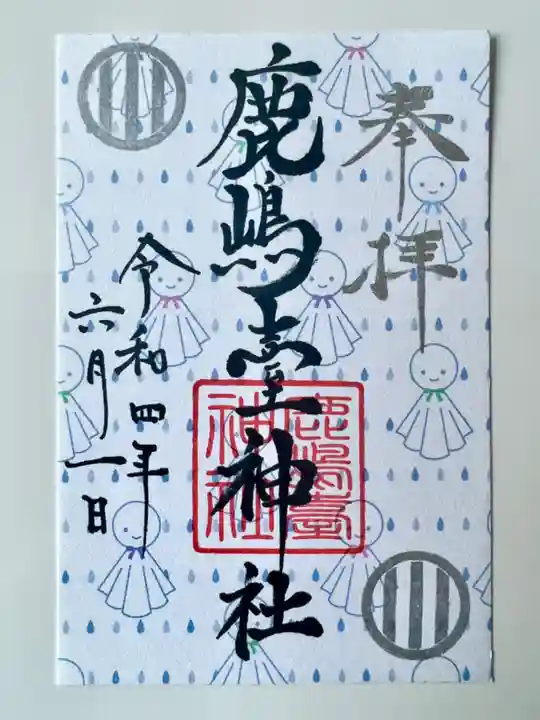 奉拝
鹿嶋臺神社
鹿嶋臺
神社
令和四年
六月一日